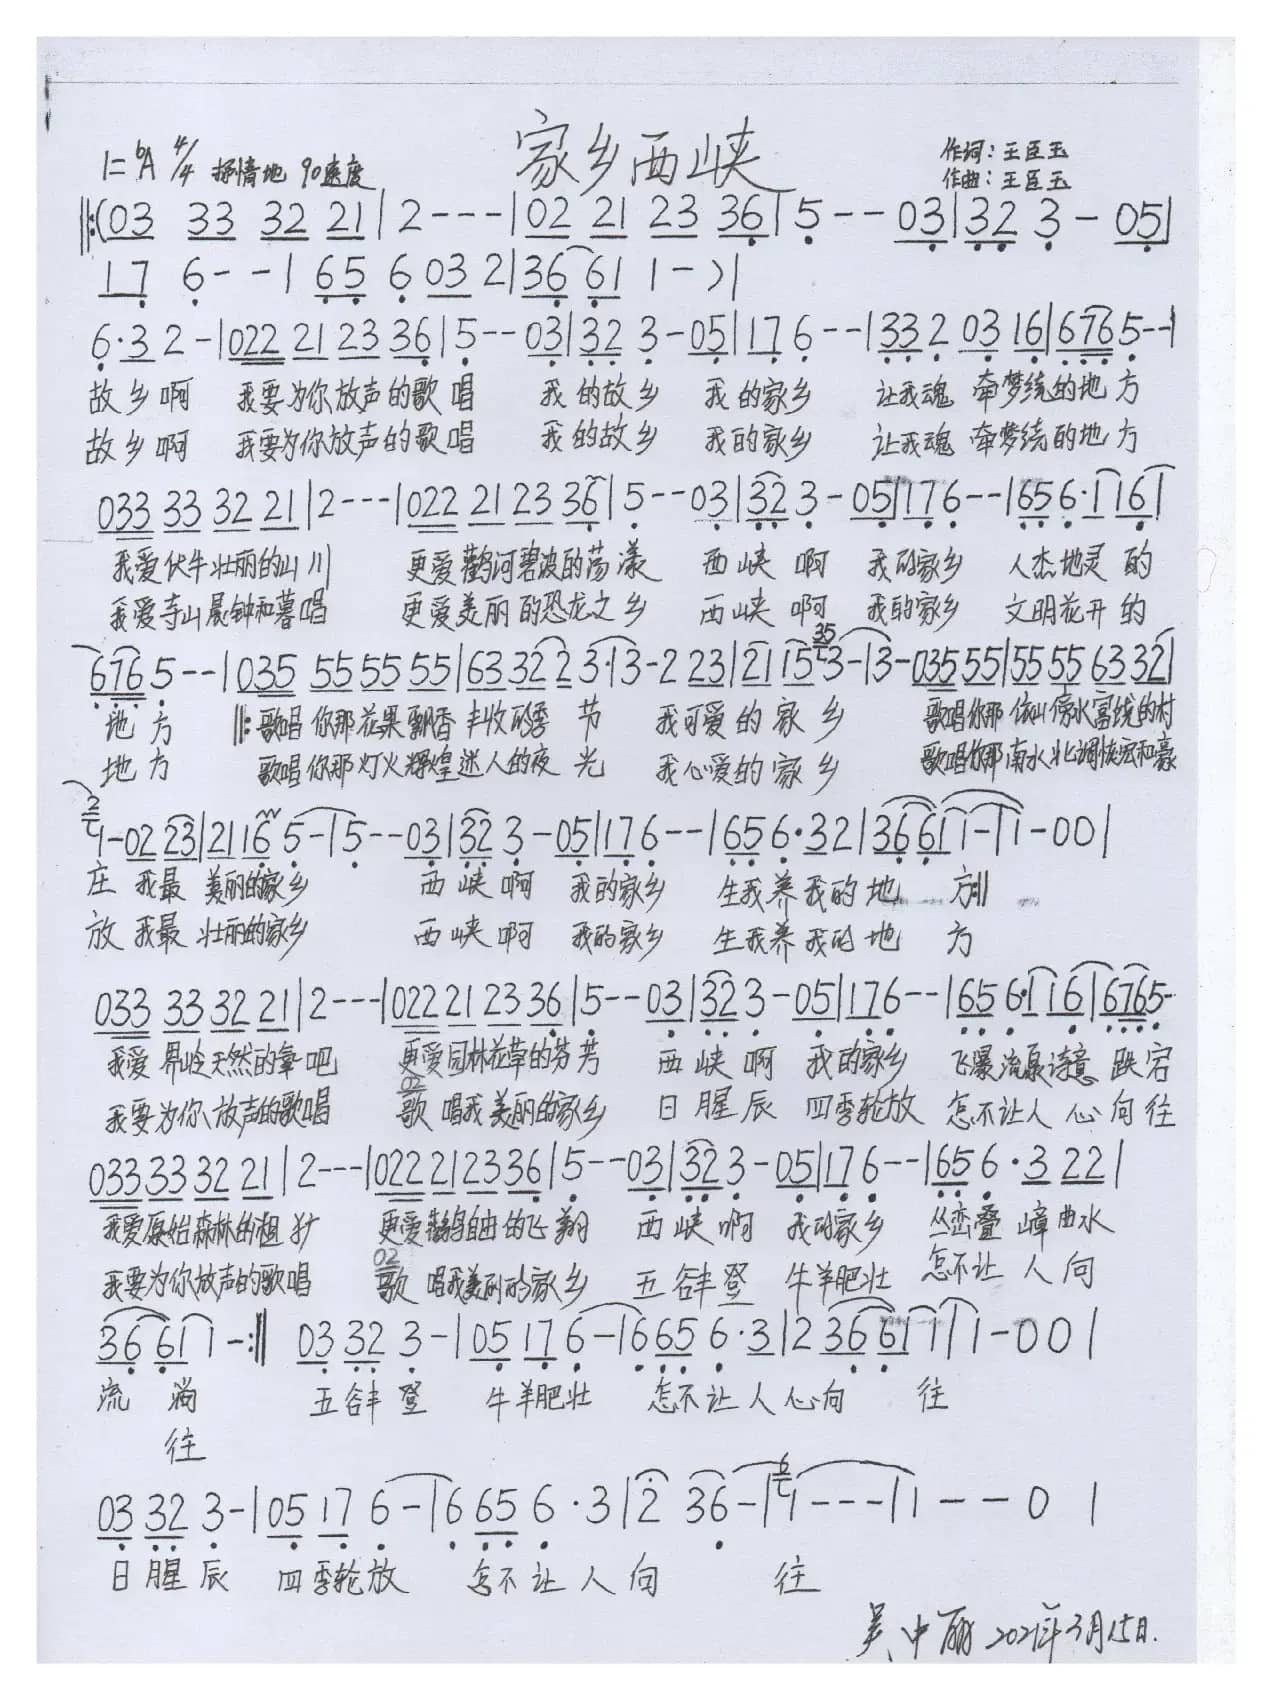 家乡西峡
1=bA 4/4 抒情地 90速度
作词：王臣玉
作曲：王臣玉
‖:(03 33 32 21|2---|02 21 23 36|5--03|32 3-05|
17 6--|65 6 03 2|36 61 1-)|
6·3 2-|022 21 23 36|5--03|32 3-05|17 6--|33 2 03 16|676 5--|
故乡啊 我要为你放声的歌唱 我的故乡 我的家乡 让我魂 牵梦绕的地方
故乡啊 我要为你放声的歌唱 我的故乡 我的家乡 让我魂 牵梦绕的地方
033 33 32 21|2---|022 21 23 36|5--03|32 3-05|17 6--|65 6·1 16|
我爱伏牛壮丽的山川 更爱鹳河碧波的荡漾 西峡啊 我的家乡 人杰地灵的
我爱寺山晨钟和暮唱 更爱美丽的恐龙之乡 西峡啊 我的家乡 文明花开的
676 5--|035 55 55 55|63 32 2 3·13-2 23|21 15 35 3-|3-035 55|55 55 63 32|
地方 ‖:歌唱你那花果飘香丰收的季节 我可爱的家乡 歌唱你那依山傍水富饶的村
地方 歌唱你那灯火辉煌迷人的夜光 我心爱的家乡 歌唱你那南水北调恢宏和豪
2 1-02 23|21 16 5-|5--03|32 3-05|17 6--|65 6·32|36 61 1-|1-00|
庄 我最美丽的家乡 西峡啊 我的家乡 生我养我的地方:‖
放 我最壮丽的家乡 西峡啊 我的家乡 生我养我的地方
033 33 32 21|2---|022 21 23 36|5--03|32 3-05|17 6--|65 6·1 16|676 5-
我爱界岭天然的氧吧 更爱园林花草的芬芳 西峡啊 我的家乡 飞瀑流泉诗意跌宕
02
我要为你放声的歌唱 歌唱我美丽的家乡 日月星辰 四季轮放 怎不让人心向往
033 33 32 21|2---|022 21 23 36|5--03|32 3-05|17 6--|65 6·3 22|
我爱原始森林的粗犷 更爱鹳鸟自由的飞翔 西峡啊 我的家乡 丛峦叠嶂曲水
02
我要为你放声的歌唱 歌唱我美丽的家乡 五谷丰登 牛羊肥壮 怎不让人向
36 61 1-:‖ 03 32 3-|05 17 6-|6 65 6·3|2 36 61 1|1-00|
流淌 五谷丰登 牛羊肥壮 怎不让人心向往
往
03 32 3-|05 17 6-|6 65 6·3|2 36-|6 1---|1--0|
日月星辰 四季轮放 怎不让人向往
2021年3月15日.